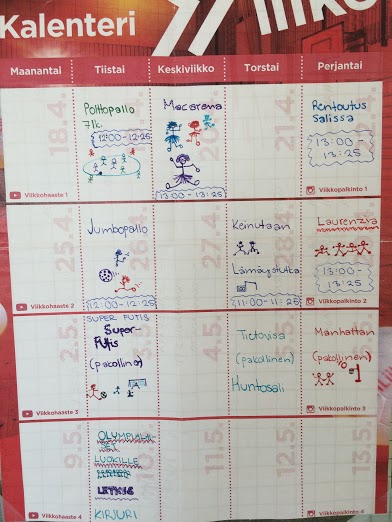 Kalenteri
Viiko
Maanantai Tiistai Keskiviikko Torstai Perjantai
18.4. 20.4. 21.4.
Polttopallo
7lk.
12:00-12:25
Macarena
13:00-13:25
Rentoutus
Salissa
13:00-
13:25
Viikkohaaste 1 Viikkopalkinto 1
25.4. 26.4. 27.4. 28.4.
Jumbopallo
12:00-12:25
Keinutaan
Lämäystutka
11:00-11:25
Laurenzia
13:00-
13:25
Viikkohaaste 2 Viikkopalkinto 2
2.5. 3.5. 4.5. 5.5.
SUPER FUTIS
Super-
Futis
(pakollinen)
Tietovisa
(pakollinen)
Huntosali
Manhattan
(pakollinen)
Viikkohaaste 3 Viikkopalkinto 3
9.5. 11.5. 12.5. 13.5.
LUOKILLE
KIRJURI
Viikkohaaste 4 Viikkopalkinto 4